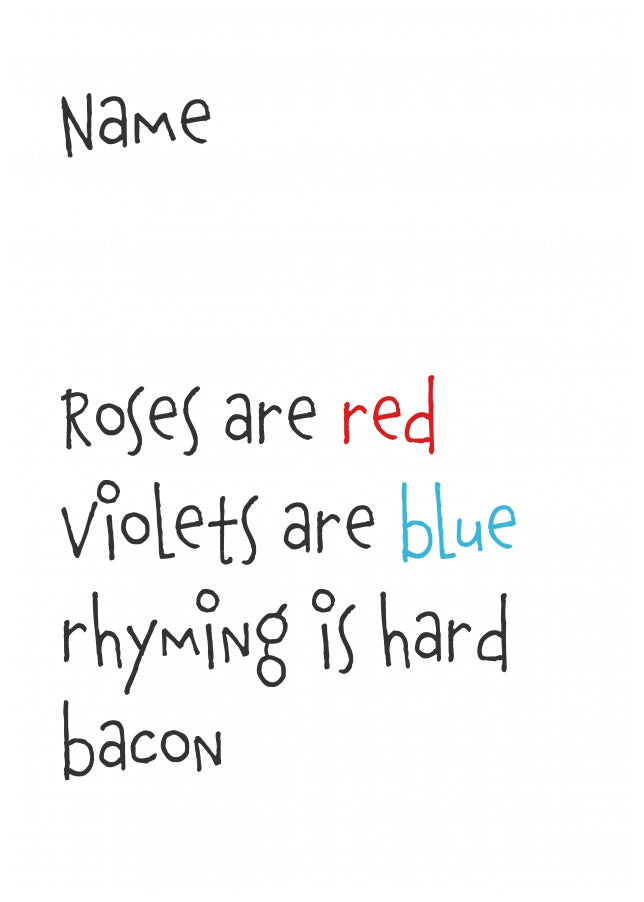 Name
Roses are red
violets are blue
rhyming is hard
bacon